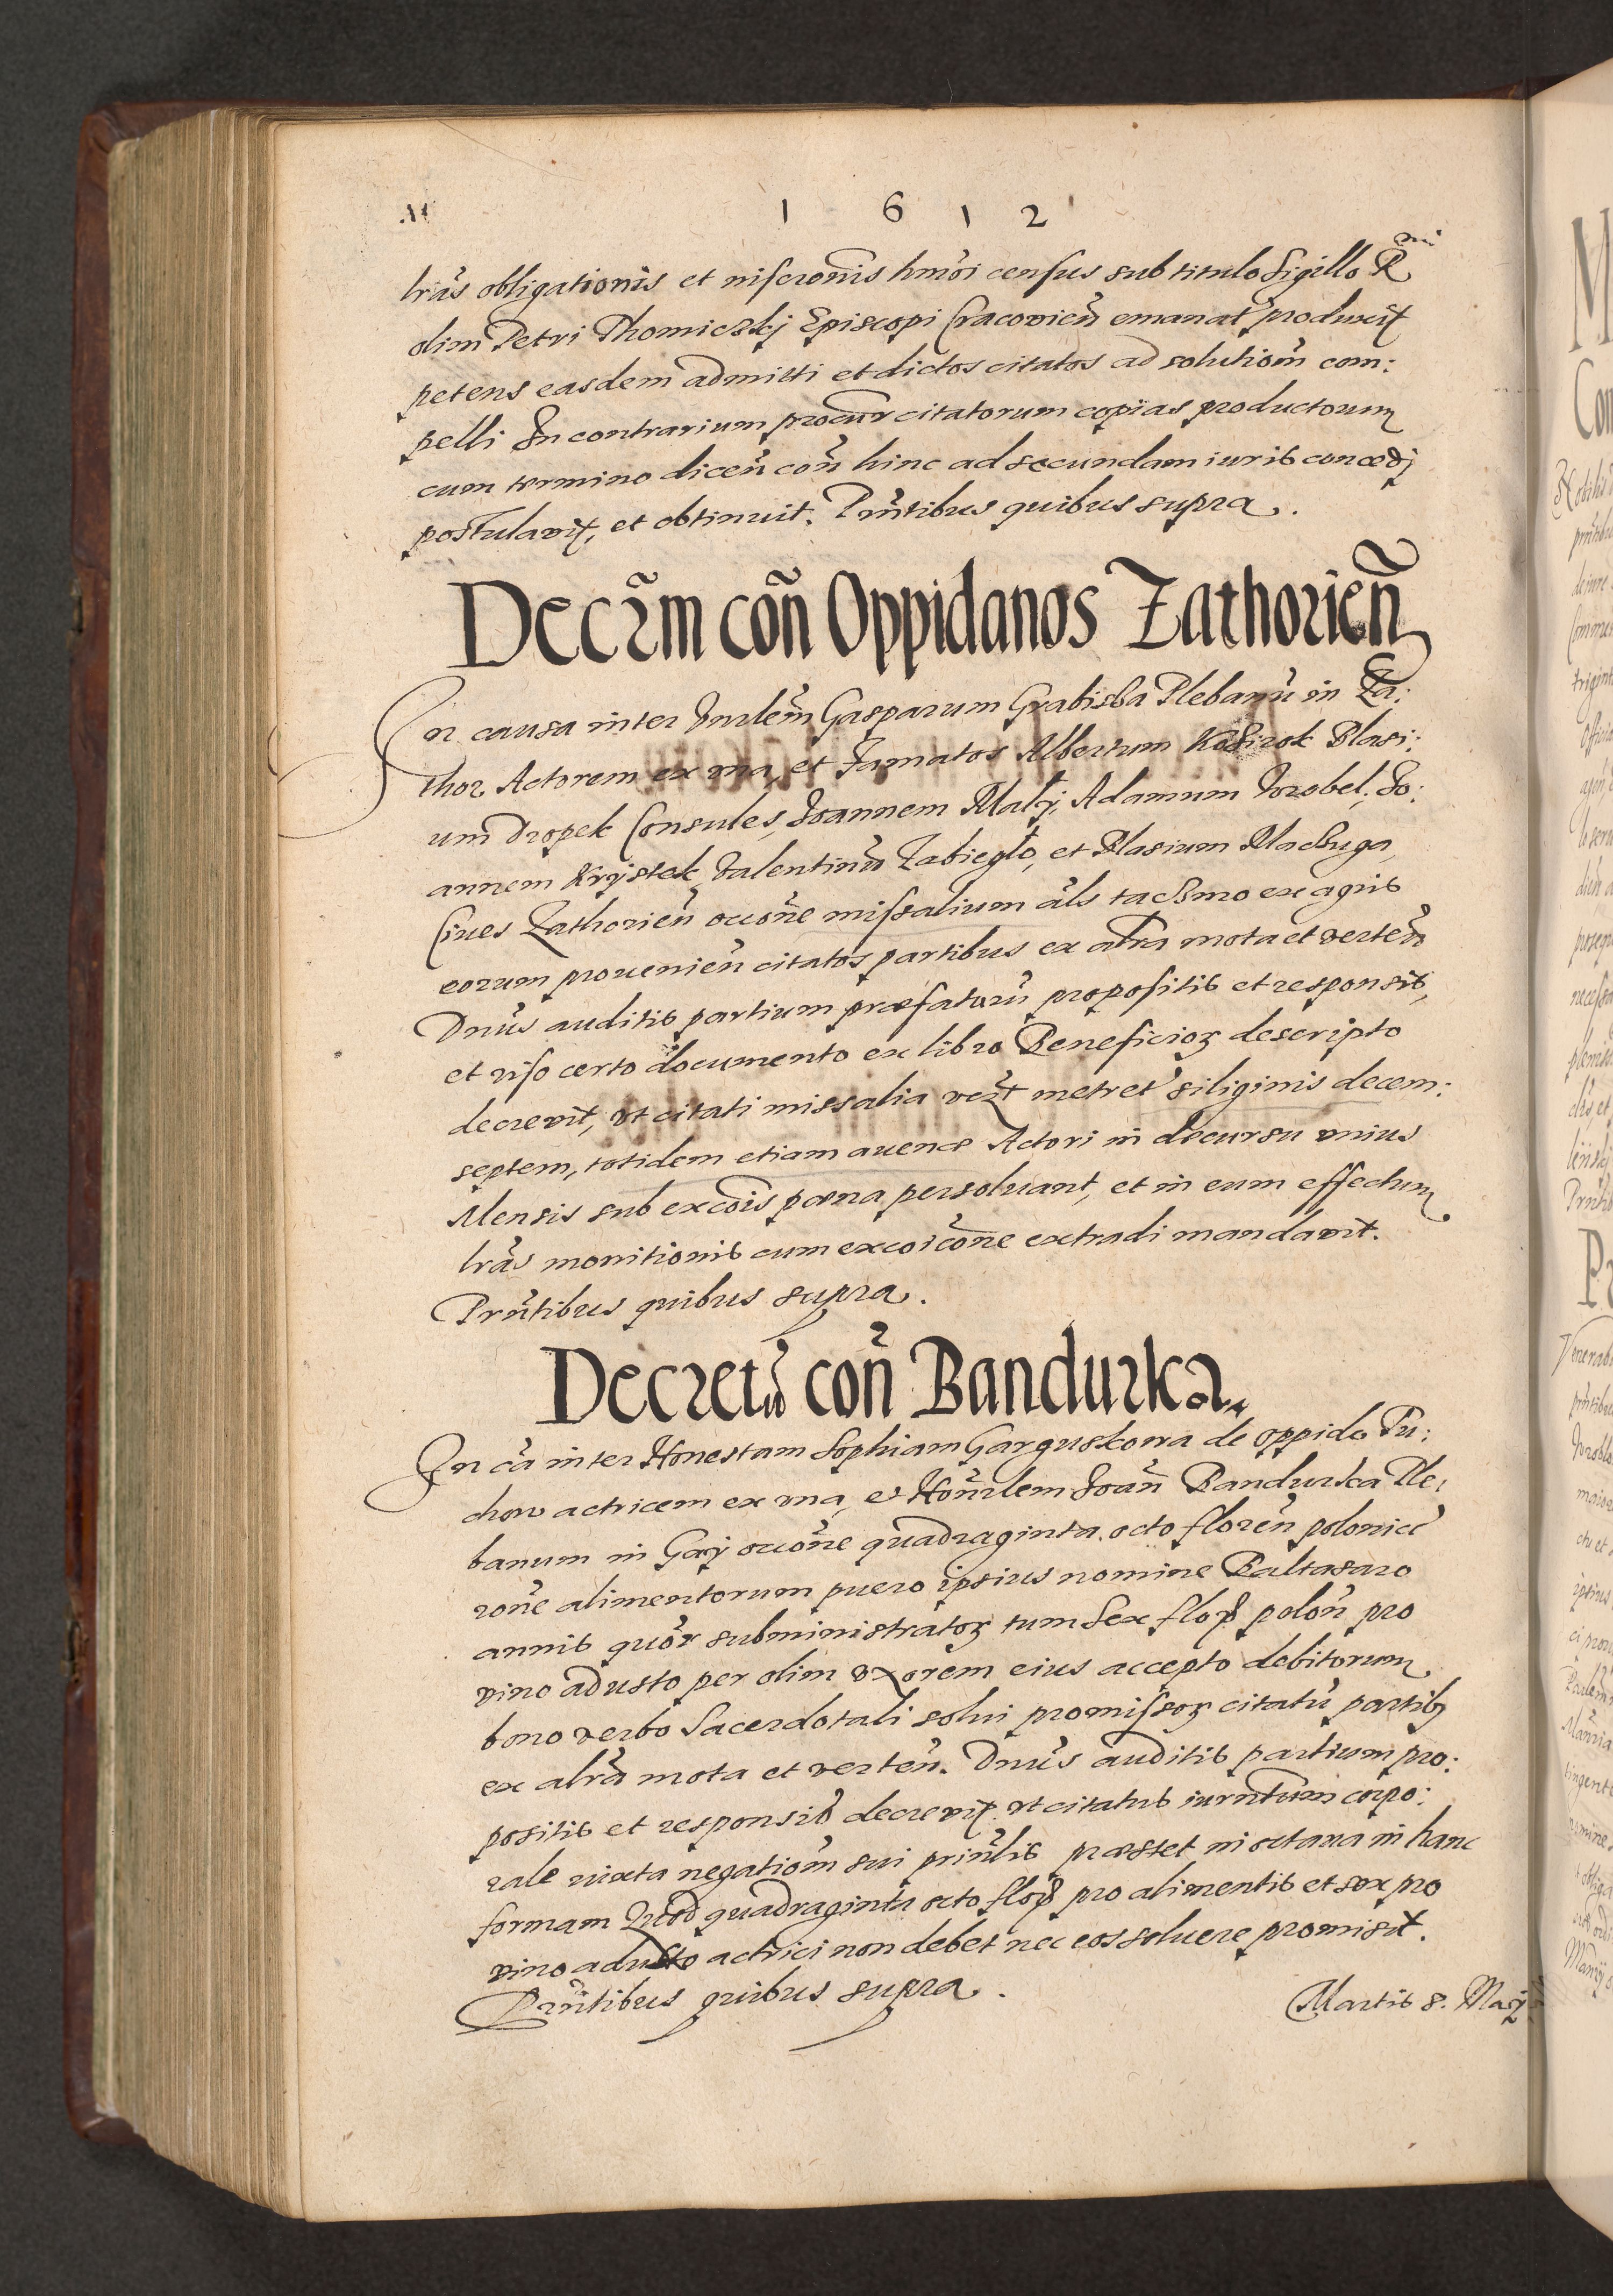 1 6 1 2
lrãs obligationis et inscrōnis hmõi census sub titulo Sigillo Rmi
olim Petri Thomiczkj Episcopi Cracovien̄ emanat produxit
petens easdem admitti et dictos citatos ad solutiom̄ com:
pelli In contrarium procur citatorum copias productorum
cum termino dicen̄ con̄ hinc ad secundam iuris concedj
postulavit, et obtinuit. Prn̄tibus quibus supra.
Decrm̃ cōn Oppidanos Zathorien̄
In causa inter Inrlem̃ Gasparum Grabisba Plebanū in Za:
thor Actorem ex vna, et Famatos Albertum Kosirok Blasi:
um Dropek Consules, Joannem Malÿ, Adamum Wrobel, Jo:
annem Krÿstek, Valentinū Zabieglo, et Blasium Machuga,
Ciues Zathorien̄ occōne missalium als tacsmo ex agris
eorum prouenien̄ citatos partibus ex altra mota et verten̄
Dnūs auditis partium præfatarū propositis et responsis,
et viso certo documento ex libro Beneficioꝝ descripto
decrevit, vt citati missalia vezt metret siliginis decem:
septem, totidem etiam auenæ Actori in decursu vnius
Mensis sub excōis pœna persoluant, et in eum effectum
lrãs monitionis cum excoicōne extradi mandavit.
Prn̄tibus quibus supra.
Decretū cōn Bandurka.
In cã inter Honestam Sophiam Garguskowa de oppido Pu:
chow actricem ex vna, et Honrlem Joan̄ Bandurka Ple:
banum in Gaÿ occōne quadraginta octo floren̄ polonicæ
rōne alimentorum puero ipsius nomine Baltasaro
annis quōr subministratoꝝ tum sex flor̄ polon̄ pro
vino adusto per olim vxorem eius accepto debitorum
bono verbo Sacerdotali solui promissoꝝ citatū partibꝫ
ex altrã mota et verten̄. Dnūs auditis partium pro:
positis et responsis decrevit vt citatus iurn̄tum corpo:
rale iuxta negatiom̄ sui prin̄lis præstet in octava in hanc
formam Quod quadraginta octo flor̄ pro alimentis et sex pro
vino adusto actrici non debet nec eos soluere promisit.
Prn̄tibus quibus supra.
Martis 8. Maÿ